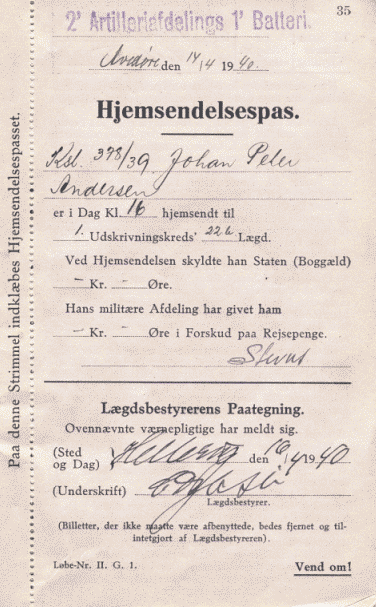 35
2' Artilleriafdelings 1' Batteri.
Avedøre den 14/4 1940.
Hjemsendelsespas.
Kst. 378/39 Johan Peter
Andersen
er i Dag Kl. 16 hjemsendt til
1. Udskrivningskreds' 226 Lægd.
Ved Hjemsendelsen skyldte han Staten (Boggæld)
— Kr. — Øre.
Hans militære Afdeling har givet ham
— Kr. — Øre i Forskud paa Rejsepenge.
Lægdsbestyrerens Paategning.
Ovennævnte værnepligtige har meldt sig.
(Sted og Dag) den 16/4 1940
(Underskrift)
Lægdsbestyrer.
(Billetter, der ikke maatte være afbenyttede, bedes fjernet og til-
intetgjort af Lægdsbestyreren).
Løbe-Nr. II. G. 1.
Vend om!
Paa denne Strimmel indklæbes Hjemsendelsespasset.